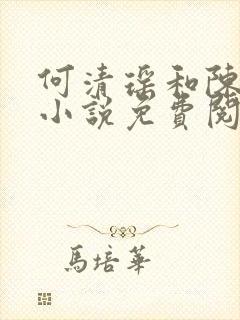 何清瑶和陈
小說免費閱
馬培華